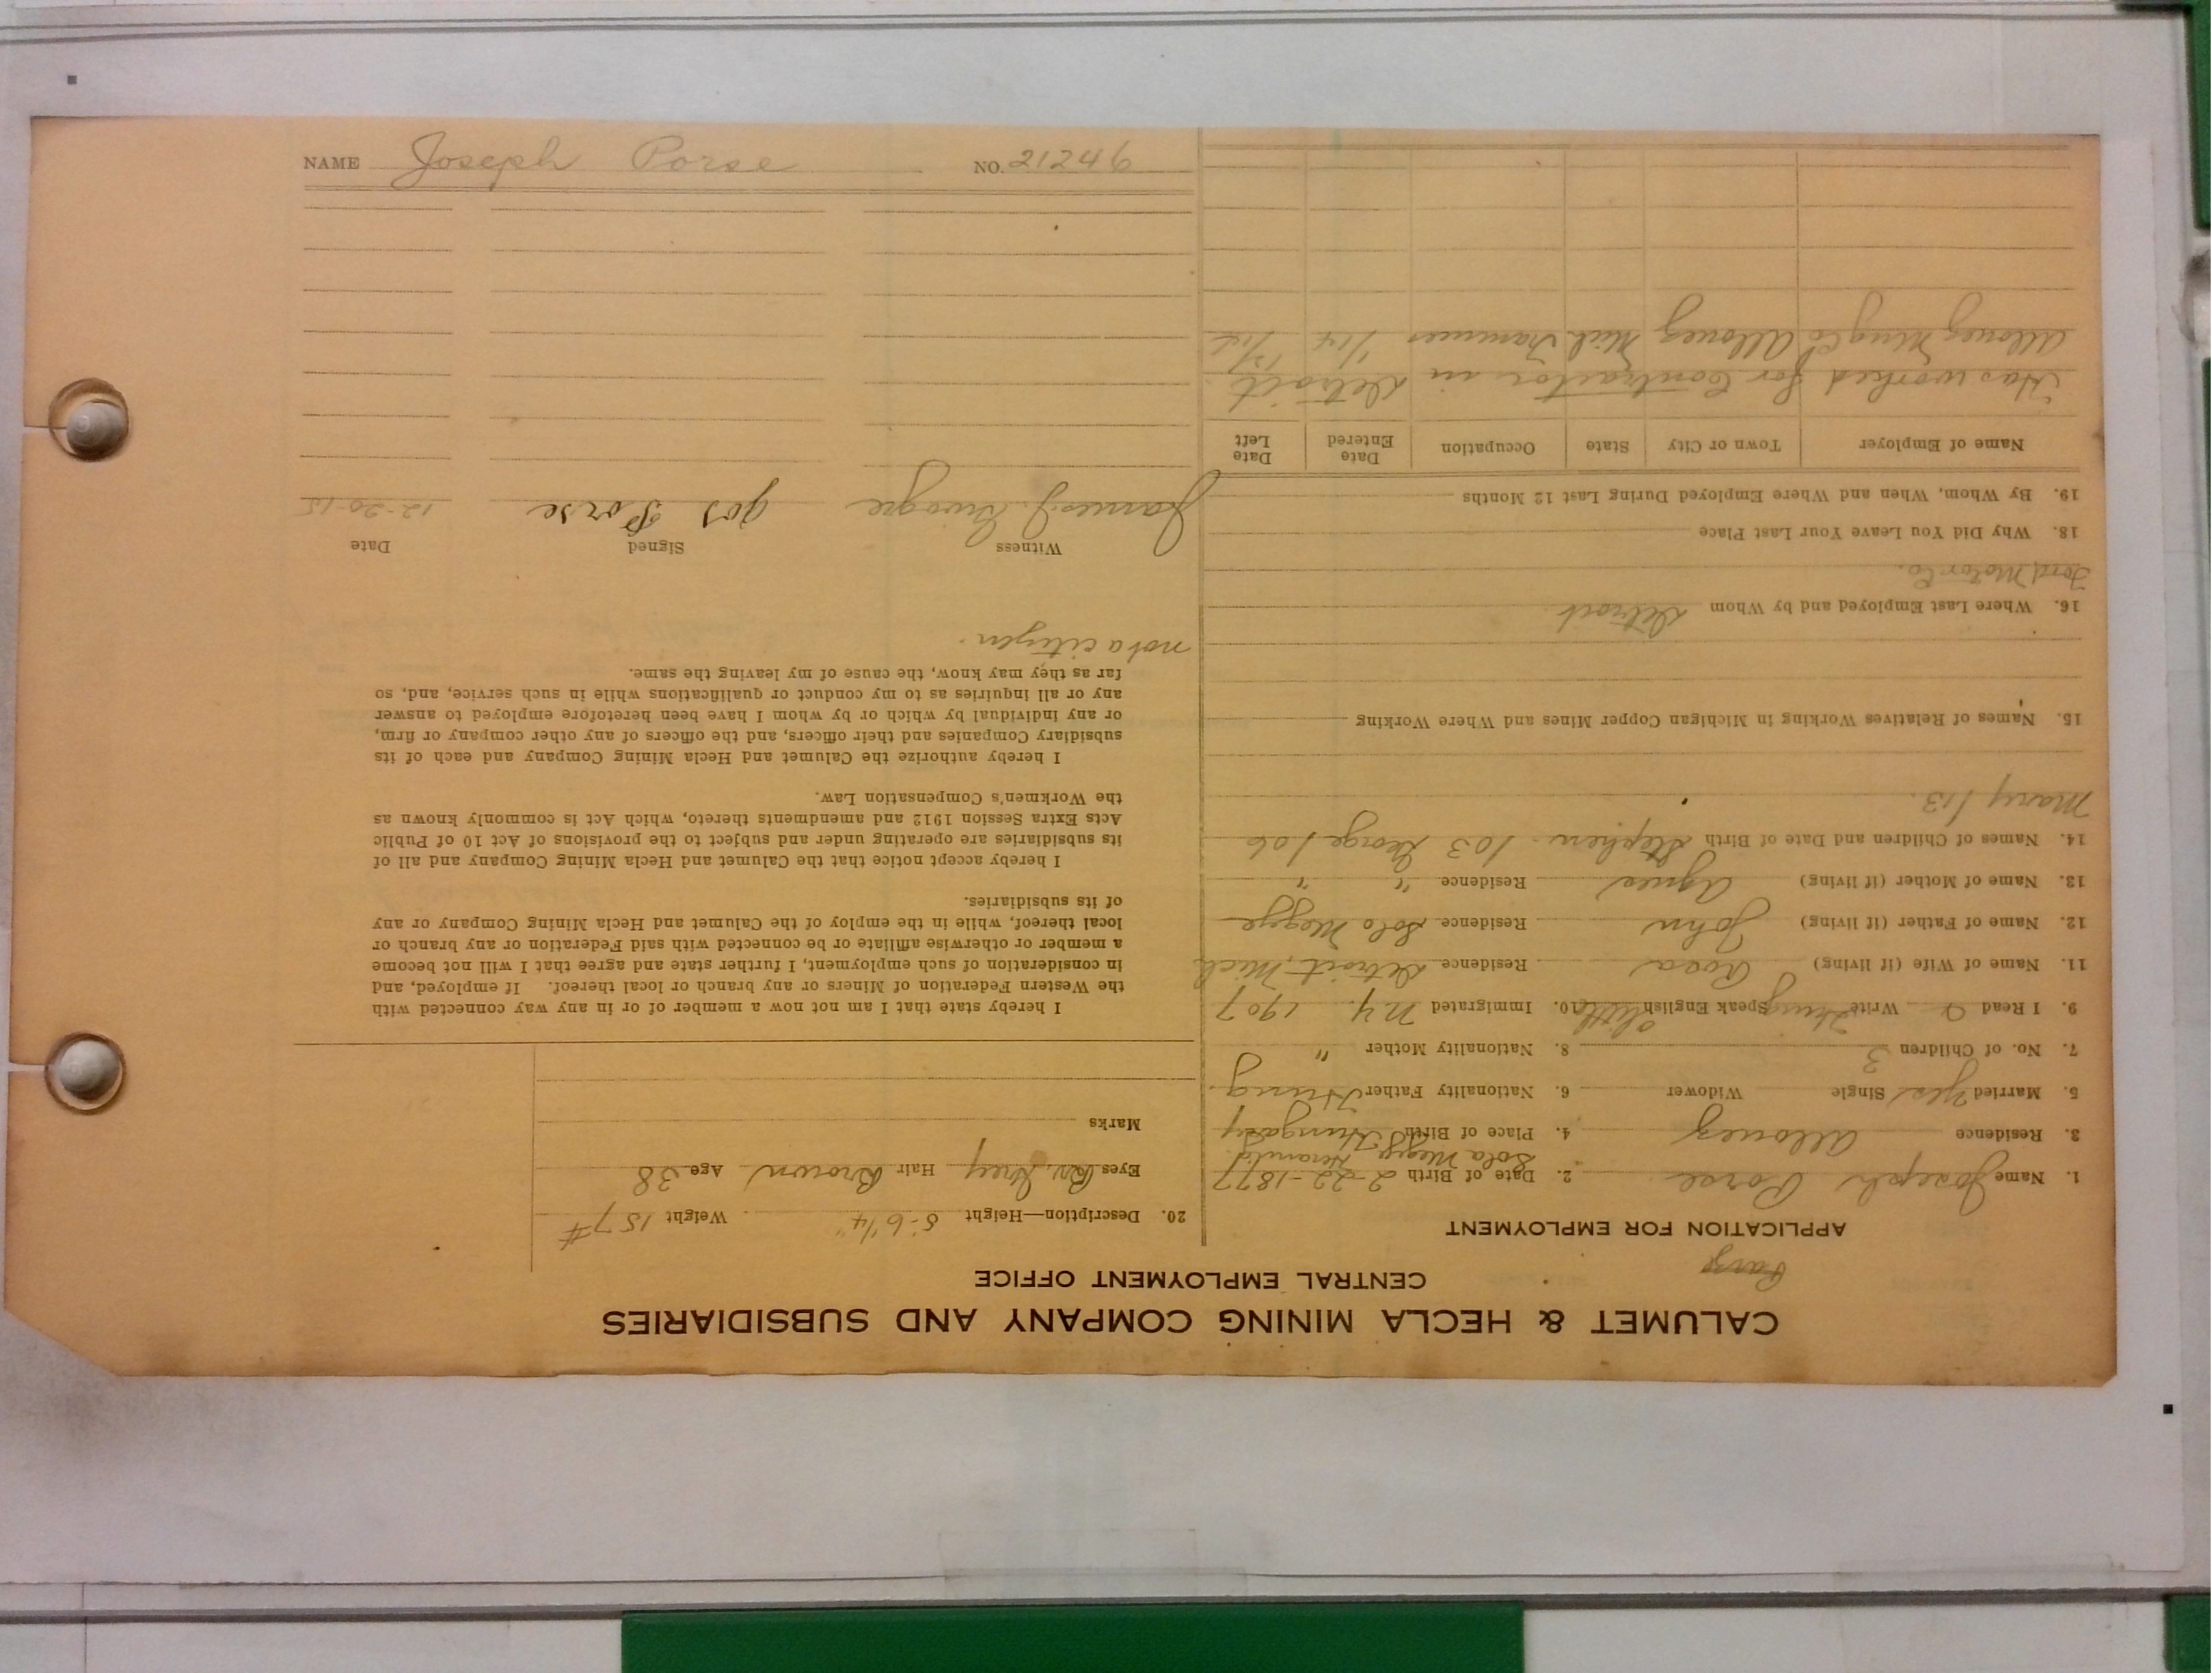 CALUMET & HECLA MINING COMPANY AND SUBSIDIARIES
CENTRAL EMPLOYMENT OFFICE
APPLICATION FOR EMPLOYMENT
1. Name Joseph Porse 2. Date of Birth 2-22-1877
Sola Megge
3. Residence Allouez 4. Place of Birth Hungary
5. Married Yes Single Widower 6. Nationality Father Hung
7. No. of Children 3 8. Nationality Mother "
9. I Read Write Hung Speak English Little 10. Immigrated N.Y. 1907
11. Name of Wife (if living) Rosa Residence Detroit, Mich
12. Name of Father (if living) John Residence Solo Megge
13. Name of Mother (if living) Agnes Residence " "
14. Names of Children and Date of Birth Stephen 103 George 106
Mary 113.
15. Names of Relatives Working in Michigan Copper Mines and Where Working
16. Where Last Employed and by Whom Detroit
Ford Motor Co.
18. Why Did You Leave Your Last Place
19. By Whom, When and Where Employed During Last 12 Months
Name of Employer Town or City State Occupation Date Entered Date Left
Has worked for Contractor in Detroit
Allouez Mng Co Allouez Mich Trammer 1/14 12/14
20. Description—Height 5-6 1/4" Weight 157#
Eyes Grey Hair Brown Age 38
Marks
I hereby state that I am not now a member of or in any way connected with
the Western Federation of Miners or any branch or local thereof. If employed, and
in consideration of such employment, I further state and agree that I will not become
a member or otherwise affiliate or be connected with said Federation or any branch or
local thereof, while in the employ of the Calumet and Hecla Mining Company or any
of its subsidiaries.
I hereby accept notice that the Calumet and Hecla Mining Company and all of
its subsidiaries are operating under and subject to the provisions of Act 10 of Public
Acts Extra Session 1912 and amendments thereto, which Act is commonly known as
the Workmen's Compensation Law.
I hereby authorize the Calumet and Hecla Mining Company and each of its
subsidiary Companies and their officers, and the officers of any other company or firm,
or any individual by which or by whom I have been heretofore employed to answer
any or all inquiries as to my conduct or qualifications while in such service, and, so
far as they may know, the cause of my leaving the same.
not a citizen.
Witness Signed Date
James J. Jos Porse 12-20-15
NAME Joseph Porse NO. 21246